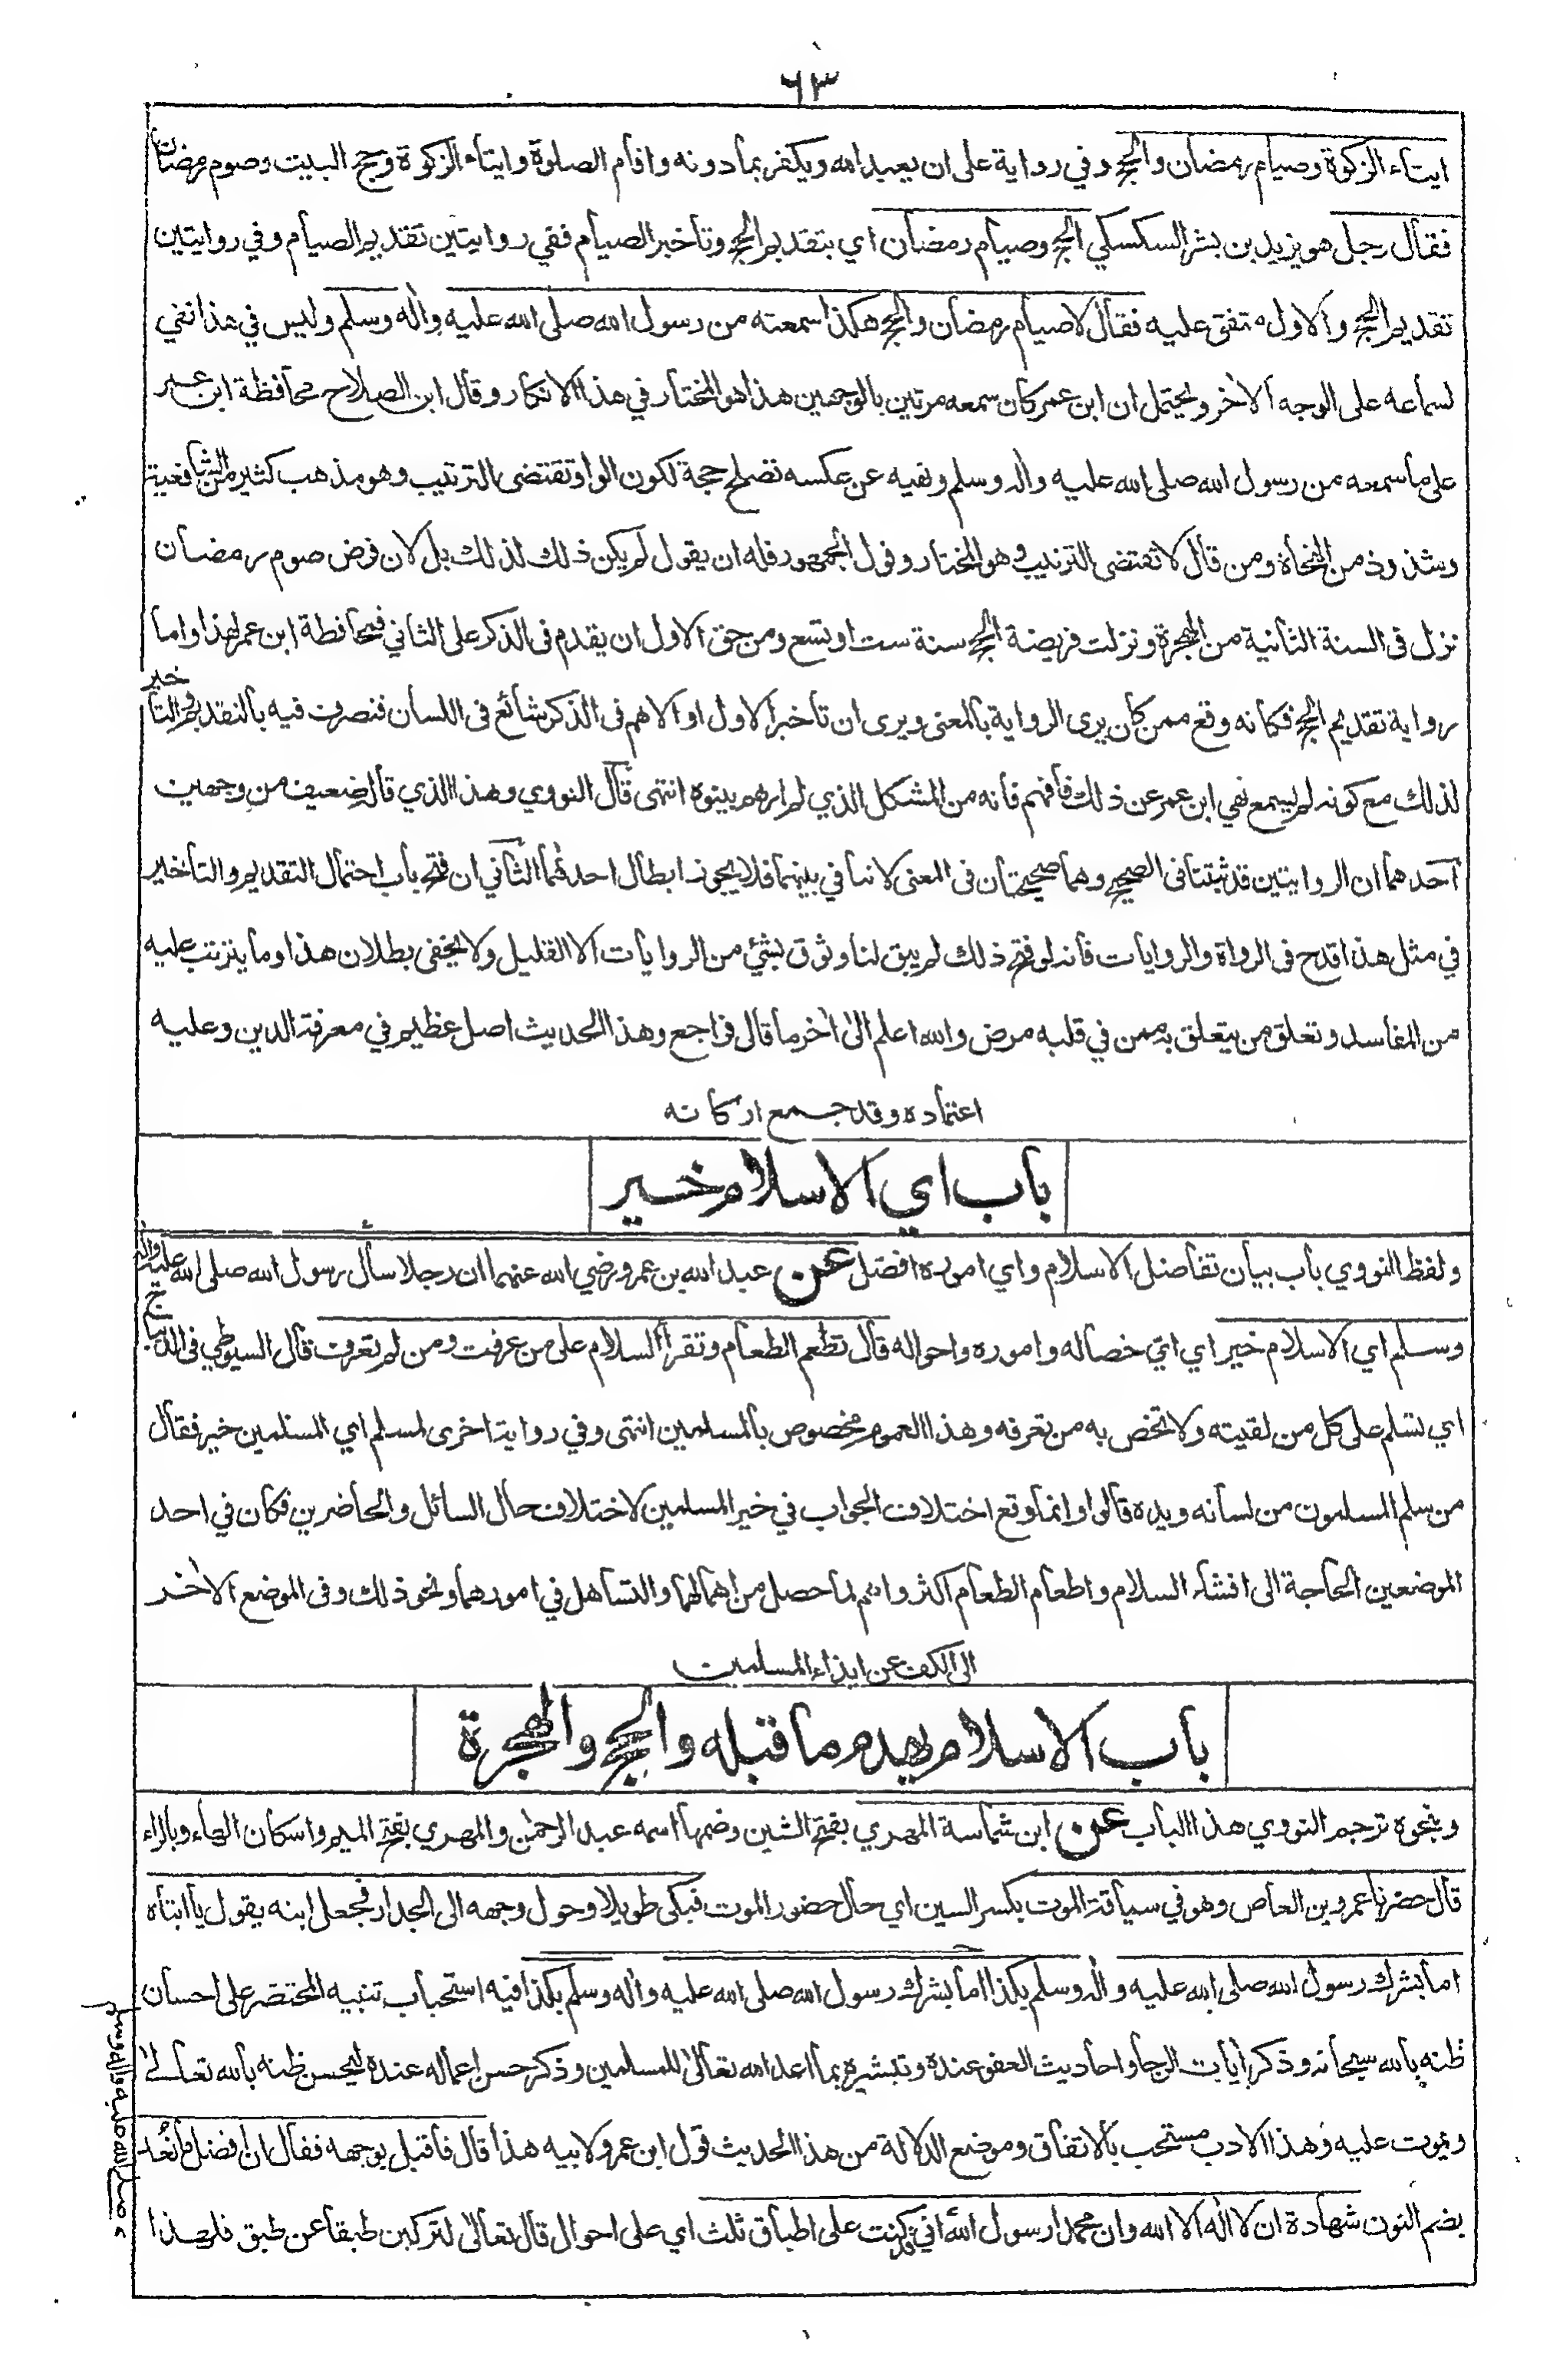 ٦٣
ايتاء الزكوة وصيام رمضان والحج وفي رواية على ان يعبد الله ويكفر بما دونه واقام الصلوة وايتاء الزكوة وحج البيت وصوم رمضان
فقال رجل هو يزيد بن بشر السكسكي الحج وصيام رمضان اي بتقديم الحج وتاخير الصيام ففي روايتين تقديم الصيام وفي روايتين
تقديم الحج والاول متفق عليه فقال لا صيام رمضان والحج هكذا سمعته من رسول الله صلى الله عليه واله وسلم وليس في هذا نفي
لسماعه على الوجه الاخر ويحتمل ان ابن عمر كان سمعه مرتين بالوجهين هذا هو المختار في هذا الانكار وقال ابن الصلاح محافظة ابن عمر
على ما سمعه من رسول الله صلى الله عليه واله وسلم ونفيه عن عكسه تصلح حجة لكون الواو تقتضى الترتيب وهو مذهب كثير من الشافعية
وشذوذ من النحاة ومن قال لا تقتضى الترتيب وهو المختار وقول الجمهور فله ان يقول لم يكن ذلك لذلك بل لان فرض صوم رمضان
نزل فى السنة الثانية من الهجرة ونزلت فريضة الحج سنة ست او تسع ومن حق الاول ان يقدم فى الذكر على الثاني فمحافظة ابن عمر لهذا واما
رواية تقديم الحج فكانه وقع ممن كان يرى الرواية بالمعنى ويرى ان تاخير الاول او الاهم فى الذكر شائع فى اللسان فتصرف فيه بالتقديم والتاخير
لذلك مع كونه لم يسمع نهي ابن عمر عن ذلك فافهم فانه من المشكل الذي لم ارهم بينوه انتهى قال النووي وهذا الذي قال ضعيف من وجهين
احدهما ان الروايتين قد ثبتتا فى الصحيح وهما صحيحتان فى المعنى لا تنافي بينهما فلا يجوز ابطال احدهما الثاني ان فتح باب احتمال التقديم والتاخير
في مثل هذا قدح فى الرواة والروايات فانه لو فتح ذلك لم يبق لنا وثوق بشئ من الروايات الا القليل ولا يخفى بطلان هذا وما يترتب عليه
من المفاسد وتعلق من يتعلق به ممن في قلبه مرض والله اعلم الى اخر ما قال فراجع وهذا الحديث اصل عظيم في معرفة الدين وعليه
اعتماده وقد جمع اركانه
باب اي الاسلام خير
ولفظ النووي باب بيان تفاضل الاسلام واي اموره افضل عن عبد الله بن عمرو رضي الله عنهما ان رجلا سأل رسول الله صلى الله عليه واله
وسلم اي الاسلام خير اي اي خصاله واموره واحواله قال تطعم الطعام وتقرأ السلام على من عرفت ومن لم تعرف قال السيوطي فى الديباج
اي تسلم على كل من لقيته ولا تخص به من تعرفه وهذا العموم مخصوص بالمسلمين انتهى وفي رواية اخرى لمسلم اي المسلمين خير فقال
من سلم المسلمون من لسانه ويده قالوا وانما وقع اختلاف الجواب في خير المسلمين لاختلاف حال السائل والحاضرين فكان في احد
الموضعين الحاجة الى افشاء السلام واطعام الطعام اكثر واهم لما حصل من اهمالهما والتساهل في امورهما ونحو ذلك وفى الموضع الاخر
الى الكف عن ايذاء المسلمين
باب الاسلام يهدم ما قبله والحج والهجرة
وبنحوه ترجم النووي هذا الباب عن ابن شماسة المهري بفتح الشين وضمها اسمه عبد الرحمن والمهري بفتح الميم واسكان الهاء وبالراء
قال حضرنا عمرو بن العاص وهو في سياقة الموت بكسر السين اي حال حضور الموت فبكى طويلا وحول وجهه الى الجدار فجعل ابنه يقول يا ابتاه
اما بشرك رسول الله صلى الله عليه واله وسلم بكذا اما بشرك رسول الله صلى الله عليه واله وسلم بكذا فيه استحباب تنبيه المحتضر على احسان
ظنه بالله سبحانه وذكر ايات الرجا واحاديث العفو عنده وتبشيره بما اعد الله تعالى للمسلمين وذكر حسن اعماله عنده ليحسن ظنه بالله تعالى
ويموت عليه وهذا الادب مستحب بالاتفاق وموضع الدلالة من هذا الحديث قول ابن عمرو لابيه هذا قال فاقبل بوجهه فقال ان افضل ما نُعد
بضم النون شهادة ان لا اله الا الله وان محمدا رسول الله اني قد كنت على اطباق ثلث اي على احوال قال تعالى لتركبن طبقا عن طبق فلهذا
صلى الله عليه واله وسلم